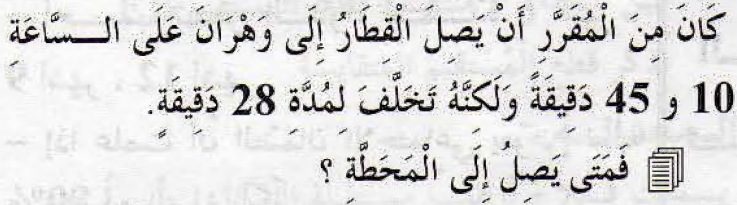 كَانَ مِنَ الْمُقَرَّرِ أَنْ يَصِلَ الْقِطَارُ إِلَى وَهْرَانَ عَلَى الـسَّاعَةِ
10 و 45 دَقِيقَةً وَلَكِنَّهُ تَخَلَّفَ لِمُدَّةِ 28 دَقِيقَةٍ.
فَمَتَى يَصِلُ إِلَى الْمَحَطَّةِ ؟